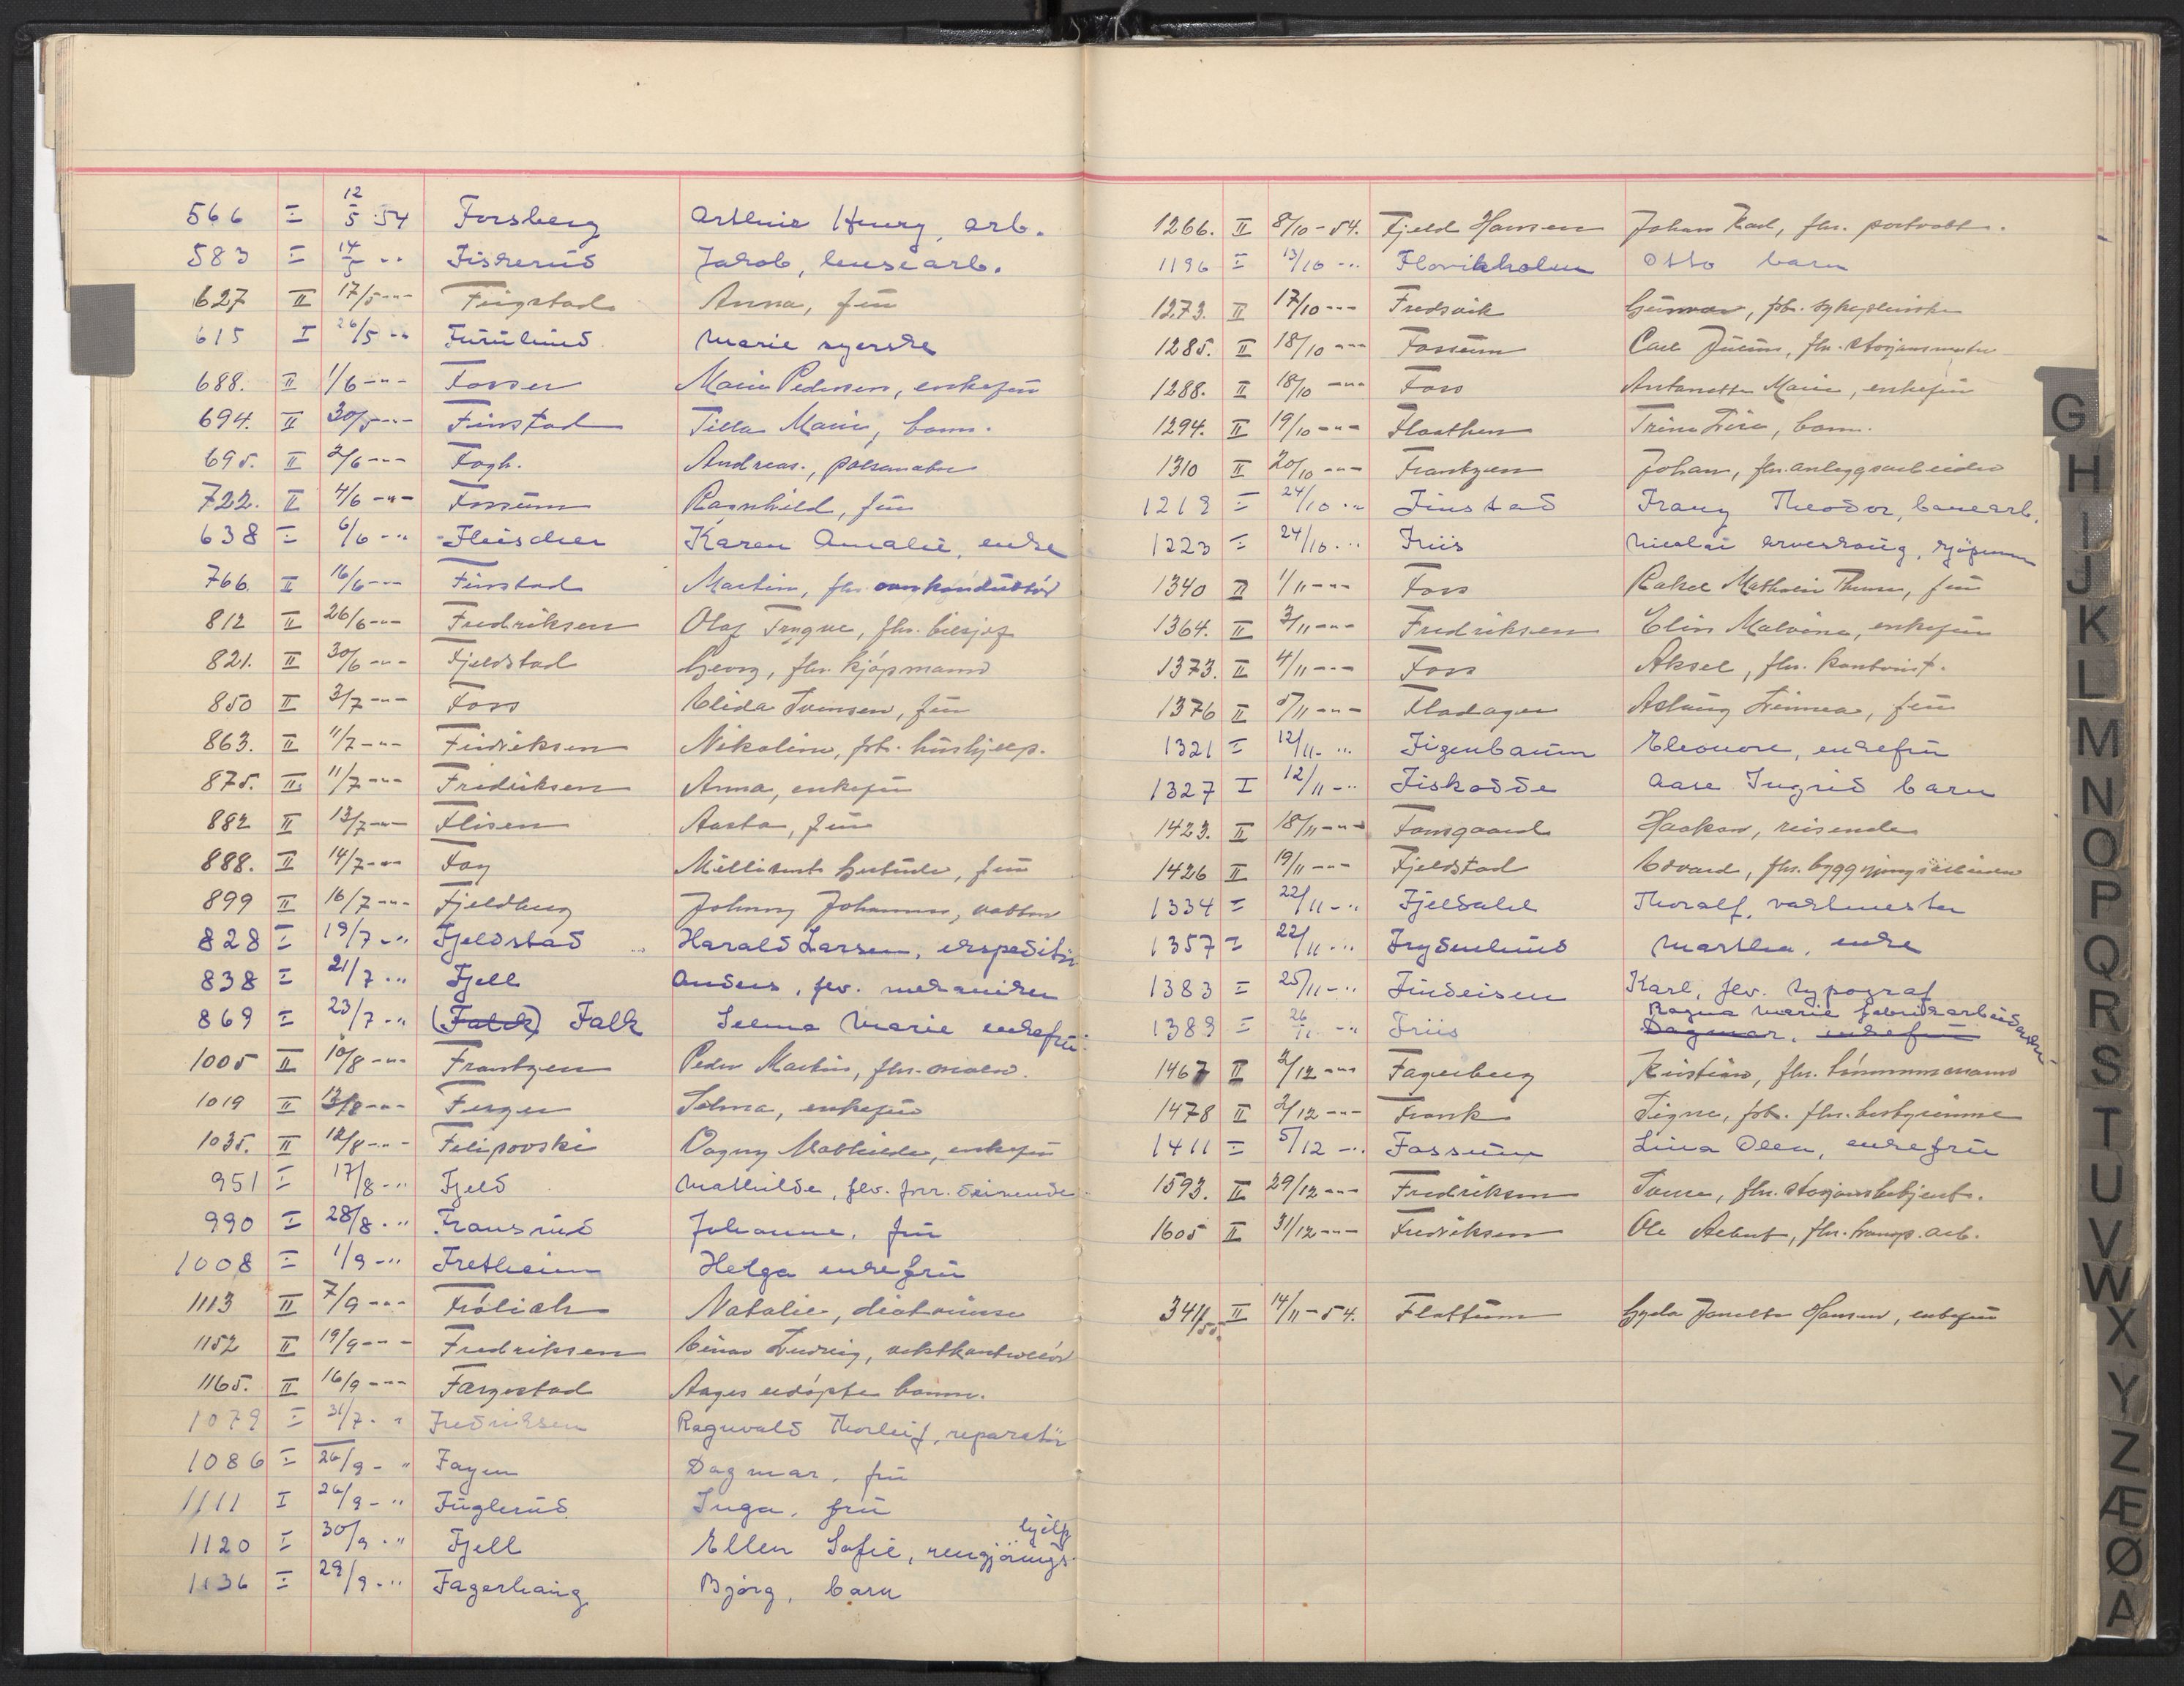 566 I 12/5 54 Forsberg Arthur Henry, arb.
583 I 14/5 -" Fiskerud Jakob, lensearb.
627 II 17/5 -"- Fingstad Anna, frü
615 I 26/5 -" Furulund Marie syerske
688. II 1/6 -"- Fosser Marie Pedersen, enkefrü
694. II 30/5 -"- Finstad Tilla Marie, barn.
695. II 2/6 -"- Fogh. Andreas.,
722. II 4/6 -"- Fossum Ragnhild, frü
638 I 6/6 -" Fleischer Karen Amalie, enke
766. II 16/6 -"- Finstad Martin, fhv.
812 II 26/6 -"- Fredriksen Olaf Trygve, fhv.
821. II 30/6 -"- Fjeldstad Georg, fhv. kjøpmann
850 II 3/7 -"- Foss Elida Svensen, frü
863. II 11/7 -"- Fredriksen Nikoline, frk. hüshjelp.
875. II 11/7 -"- Fredriksen Anna, enkefrü
882 II 13/7 -"- Flisen Aasta, frü
888. II 14/7 -"- Foy Millicent Gertrude, frü
899 II 16/7 -"- Fjeldberg Johnny Johannes,
828 I 19/7 -" Fjeldstad Harald Larsen, ekspeditør
838 I 21/7 -" Fjell Anders, fhv. mekaniker
869 I 23/7 -" (Falck) Falk Selma Marie enkefrü
1005 II 10/8 -"- Frantzen Peder Martin, fhv. maler.
1019 II 13/8 -"- Ferger Selma, enkefrü
1035. II 12/8 -"- Filipovski Dagny Mathilde, enkefrü
951 I 17/8 -" Fjeld Mathilde, fhv. forr. drivende
990 I 28/8 -" Fransrud Johanne, frü
1008 I 1/9 -" Fretheim Helga enkefrü
1113 II 7/9 -"- Frølich Natalie, diakonisse
1152 II 19/9 -"- Fredriksen Einar Ludvig, vektkontrollør
1165. II 16/9 -"- Fargestad Aages udøpte barn.
1079 I 31/7 -" Fredriksen Ragnvald Thorleif, reparatør
1086 I 26/9 -" Fagen Dagmar, frü
1111 I 26/9 -" Fuglerud Inga, frü
1120 I 30/9 -" Fjell Ellen Sofie, rengjørings- hjelp
1136 I 29/9 -" Fagerhaug Bjørg, barn
1266. II 8/10 - 54. Fjeld Hansen Johan Karl, fhv.
1196 I 13/10 -" Flovikholm Otto barn
1273. II 17/10 -"- Fredsvik Gunvor, frk. sykepleierske
1285. II 18/10 -"- Fossum Carl Julius, fhv. stasjonsmester
1288. II 18/10 -"- Foss Antonette Marie, enkefrü
1294. II 19/10 -"- Flaathen Trine Lise, barn.
1310 II 20/10 -"- Frantzen Johan, fhv. anleggsarbeider
1218 I 24/10 -" Finstad Franz Theodor, banearb.
1223 I 24/10 -" Friis Nicolai Arveskoug, sjømann
1340 II 1/11 -"- Foss Rakel Mathea Thune, frü
1364. II 3/11 -"- Fredriksen Elin Malvine, enkefrü
1373. II 4/11 -"- Foss Aksel, fhv. kontorist.
1376 II 5/11 -"- Fladager Aslaug Linnea, frü
1321 I 12/11 -" Figenbaum Eleonore, enkefrü
1327 I 12/11 -" Fiskodde Aase Ingrid barn
1423. II 18/11 -"- Fonsgaard Haakon, reisende
1426 II 19/11 -"- Fjeldstad Edvard, fhv. byggningsarbeider
1334 I 22/11 -" Fjeldahl Thoralf, vaktmester
1357 I 22/11 -" Frydenlund Martha, enke
1383 I 25/11 -" Findeisen Karl, fhv. typograf
1389 I 26/11 -" Friis Ragna Marie fabrikkarbeiderske Dagmar, enkefrü
1467 II 2/12 -"- Fagerberg Kristian, fhv. tømmermann
1478 II 2/12 -"- Frank Signe, frk. fhv. bestyrerinne
1411 I 5/12 -" Fossum Lina Olea, enkefrü
1593. II 29/12 -"- Fredriksen Tomas, fhv. stasjonsbetjent.
1605 II 31/12 -"- Fredriksen Ole Albert, fhv. transp. arb.
341/55. II 14/11 - 54. Flattum Gyda Janette Hansen, enkefrü
G
H
I
J
K
L
M
N
O
P
Q
R
S
T
U
V
W
X
Y
Z
Æ
Ø
A